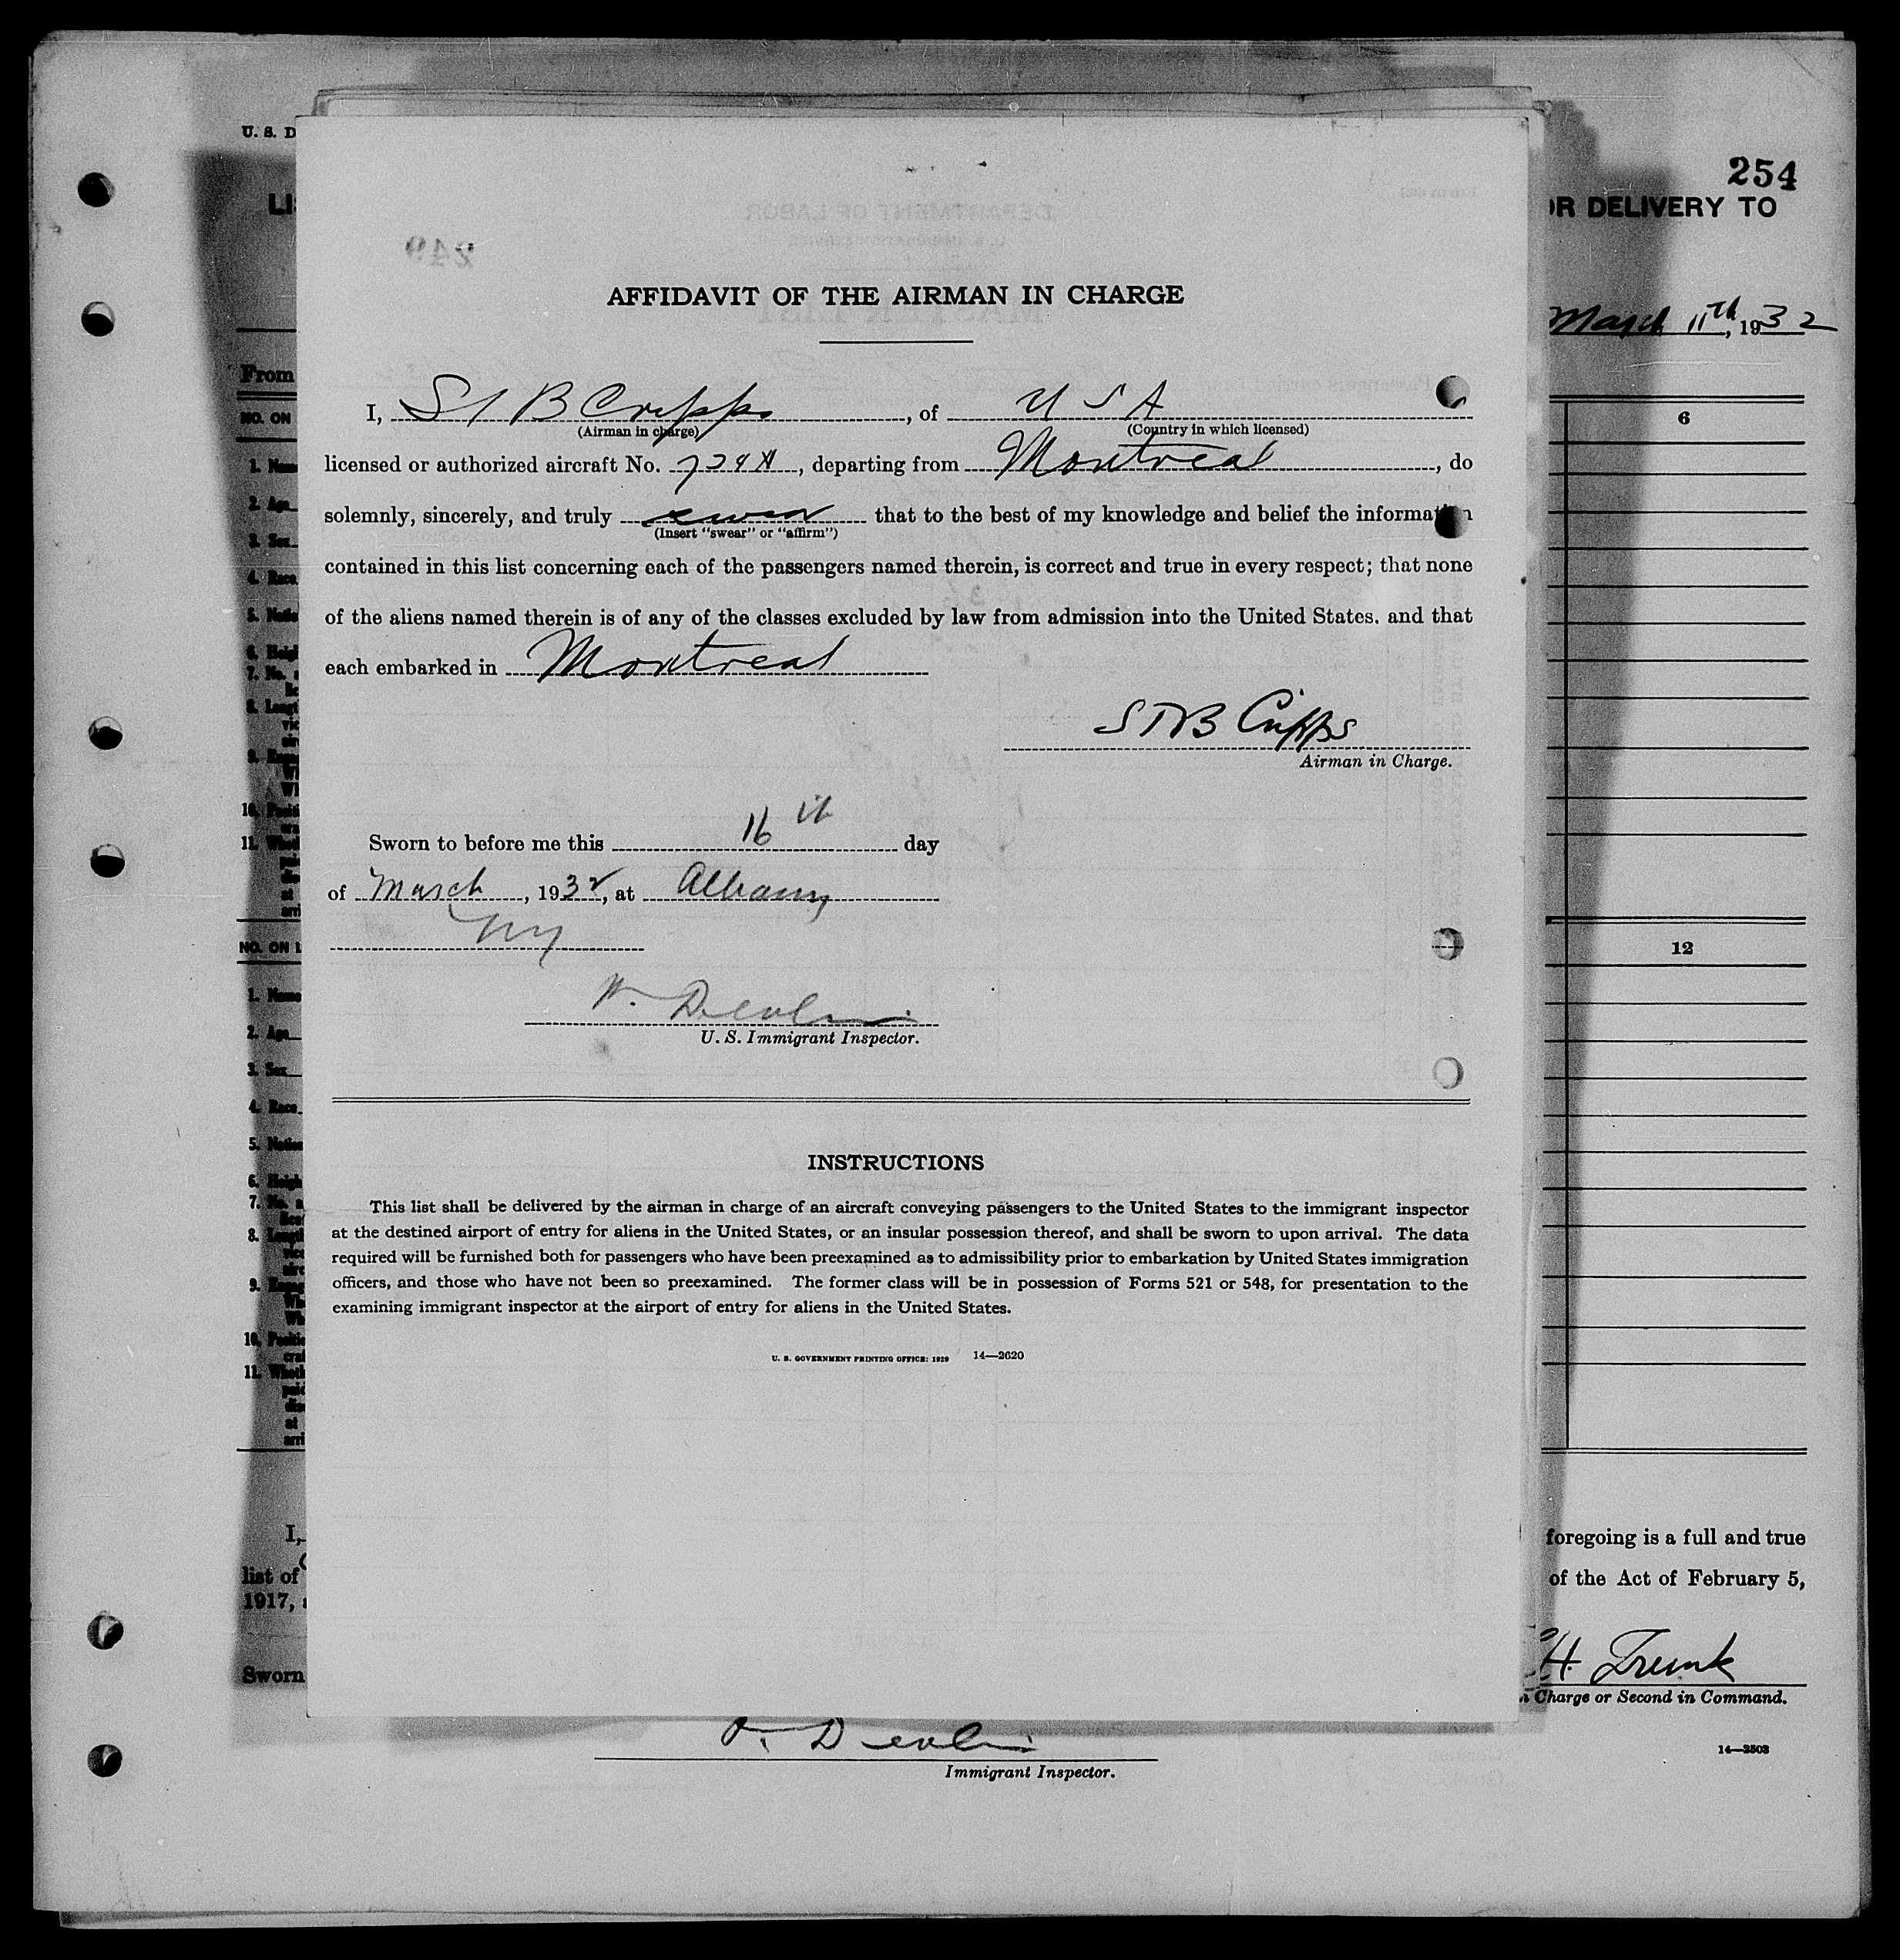 254
U. S. D
LI
OR DELIVERY TO
March 11th, 1932
From
AFFIDAVIT OF THE AIRMAN IN CHARGE
I, S T B Cripps, of U S A
(Airman in charge) (Country in which licensed)
licensed or authorized aircraft No., departing from Montreal, do
solemnly, sincerely, and truly swear that to the best of my knowledge and belief the information
(Insert "swear" or "affirm")
contained in this list concerning each of the passengers named therein, is correct and true in every respect; that none
of the aliens named therein is of any of the classes excluded by law from admission into the United States. and that
each embarked in Montreal
S T B Cripps
Airman in Charge.
Sworn to before me this 16th day
of March, 1932, at Albany
NY
W. Devlin
U. S. Immigrant Inspector.
INSTRUCTIONS
This list shall be delivered by the airman in charge of an aircraft conveying passengers to the United States to the immigrant inspector
at the destined airport of entry for aliens in the United States, or an insular possession thereof, and shall be sworn to upon arrival. The data
required will be furnished both for passengers who have been preexamined as to admissibility prior to embarkation by United States immigration
officers, and those who have not been so preexamined. The former class will be in possession of Forms 521 or 548, for presentation to the
examining immigrant inspector at the airport of entry for aliens in the United States.
U. S. GOVERNMENT PRINTING OFFICE: 1929 14—2620
NO. ON
6
1. Name
2. Age
3. Sex
4. Race
5. Natio
6. Heigh
7. No.
8. Lengt
10. Positi
11. Wheth
NO. ON L
12
1. Name
2. Age
3. Sex
4. Race
5. Nation
6. Heigh
7. No.
8. Length
10. Positio
11. Wheth
I,
foregoing is a full and true
list of
of the Act of February 5,
1917,
H. Trunk
Sworn
n Charge or Second in Command.
Devlin
Immigrant Inspector.
14—2503